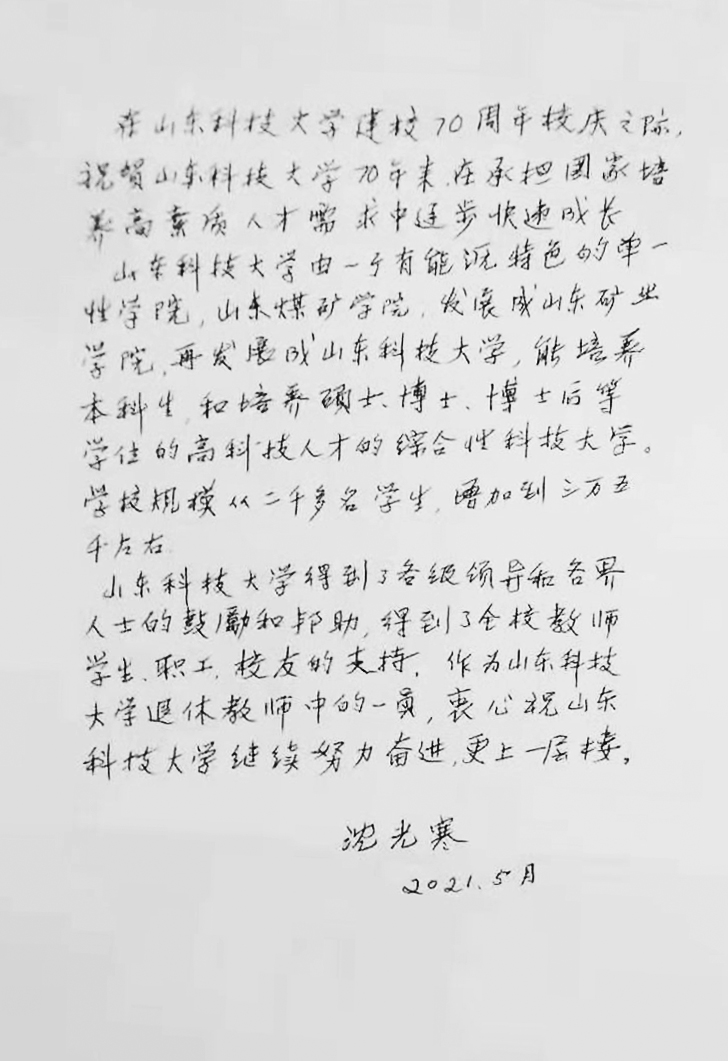 在山东科技大学建校70周年校庆之际,
祝贺山东科技大学70年来,在承担国家培
养高素质人才需求中逐步快速成长
山东科技大学由一个有能源特色的单一
性学院,山东煤矿学院,发展成山东矿业
学院,再发展成山东科技大学,能培养
本科生,和培养硕士、博士、博士后等
学位的高科技人才的综合性科技大学。
学校规模从二千多名学生,增加到三万五
千左右.
山东科技大学得到了各级领导和各界
人士的鼓励和邦助,得到了全校教师
学生、职工、校友的支持.作为山东科技
大学退休教师中的一员,衷心祝山东
科技大学继续努力奋进,更上一层楼。
沈光寒
2021.5月